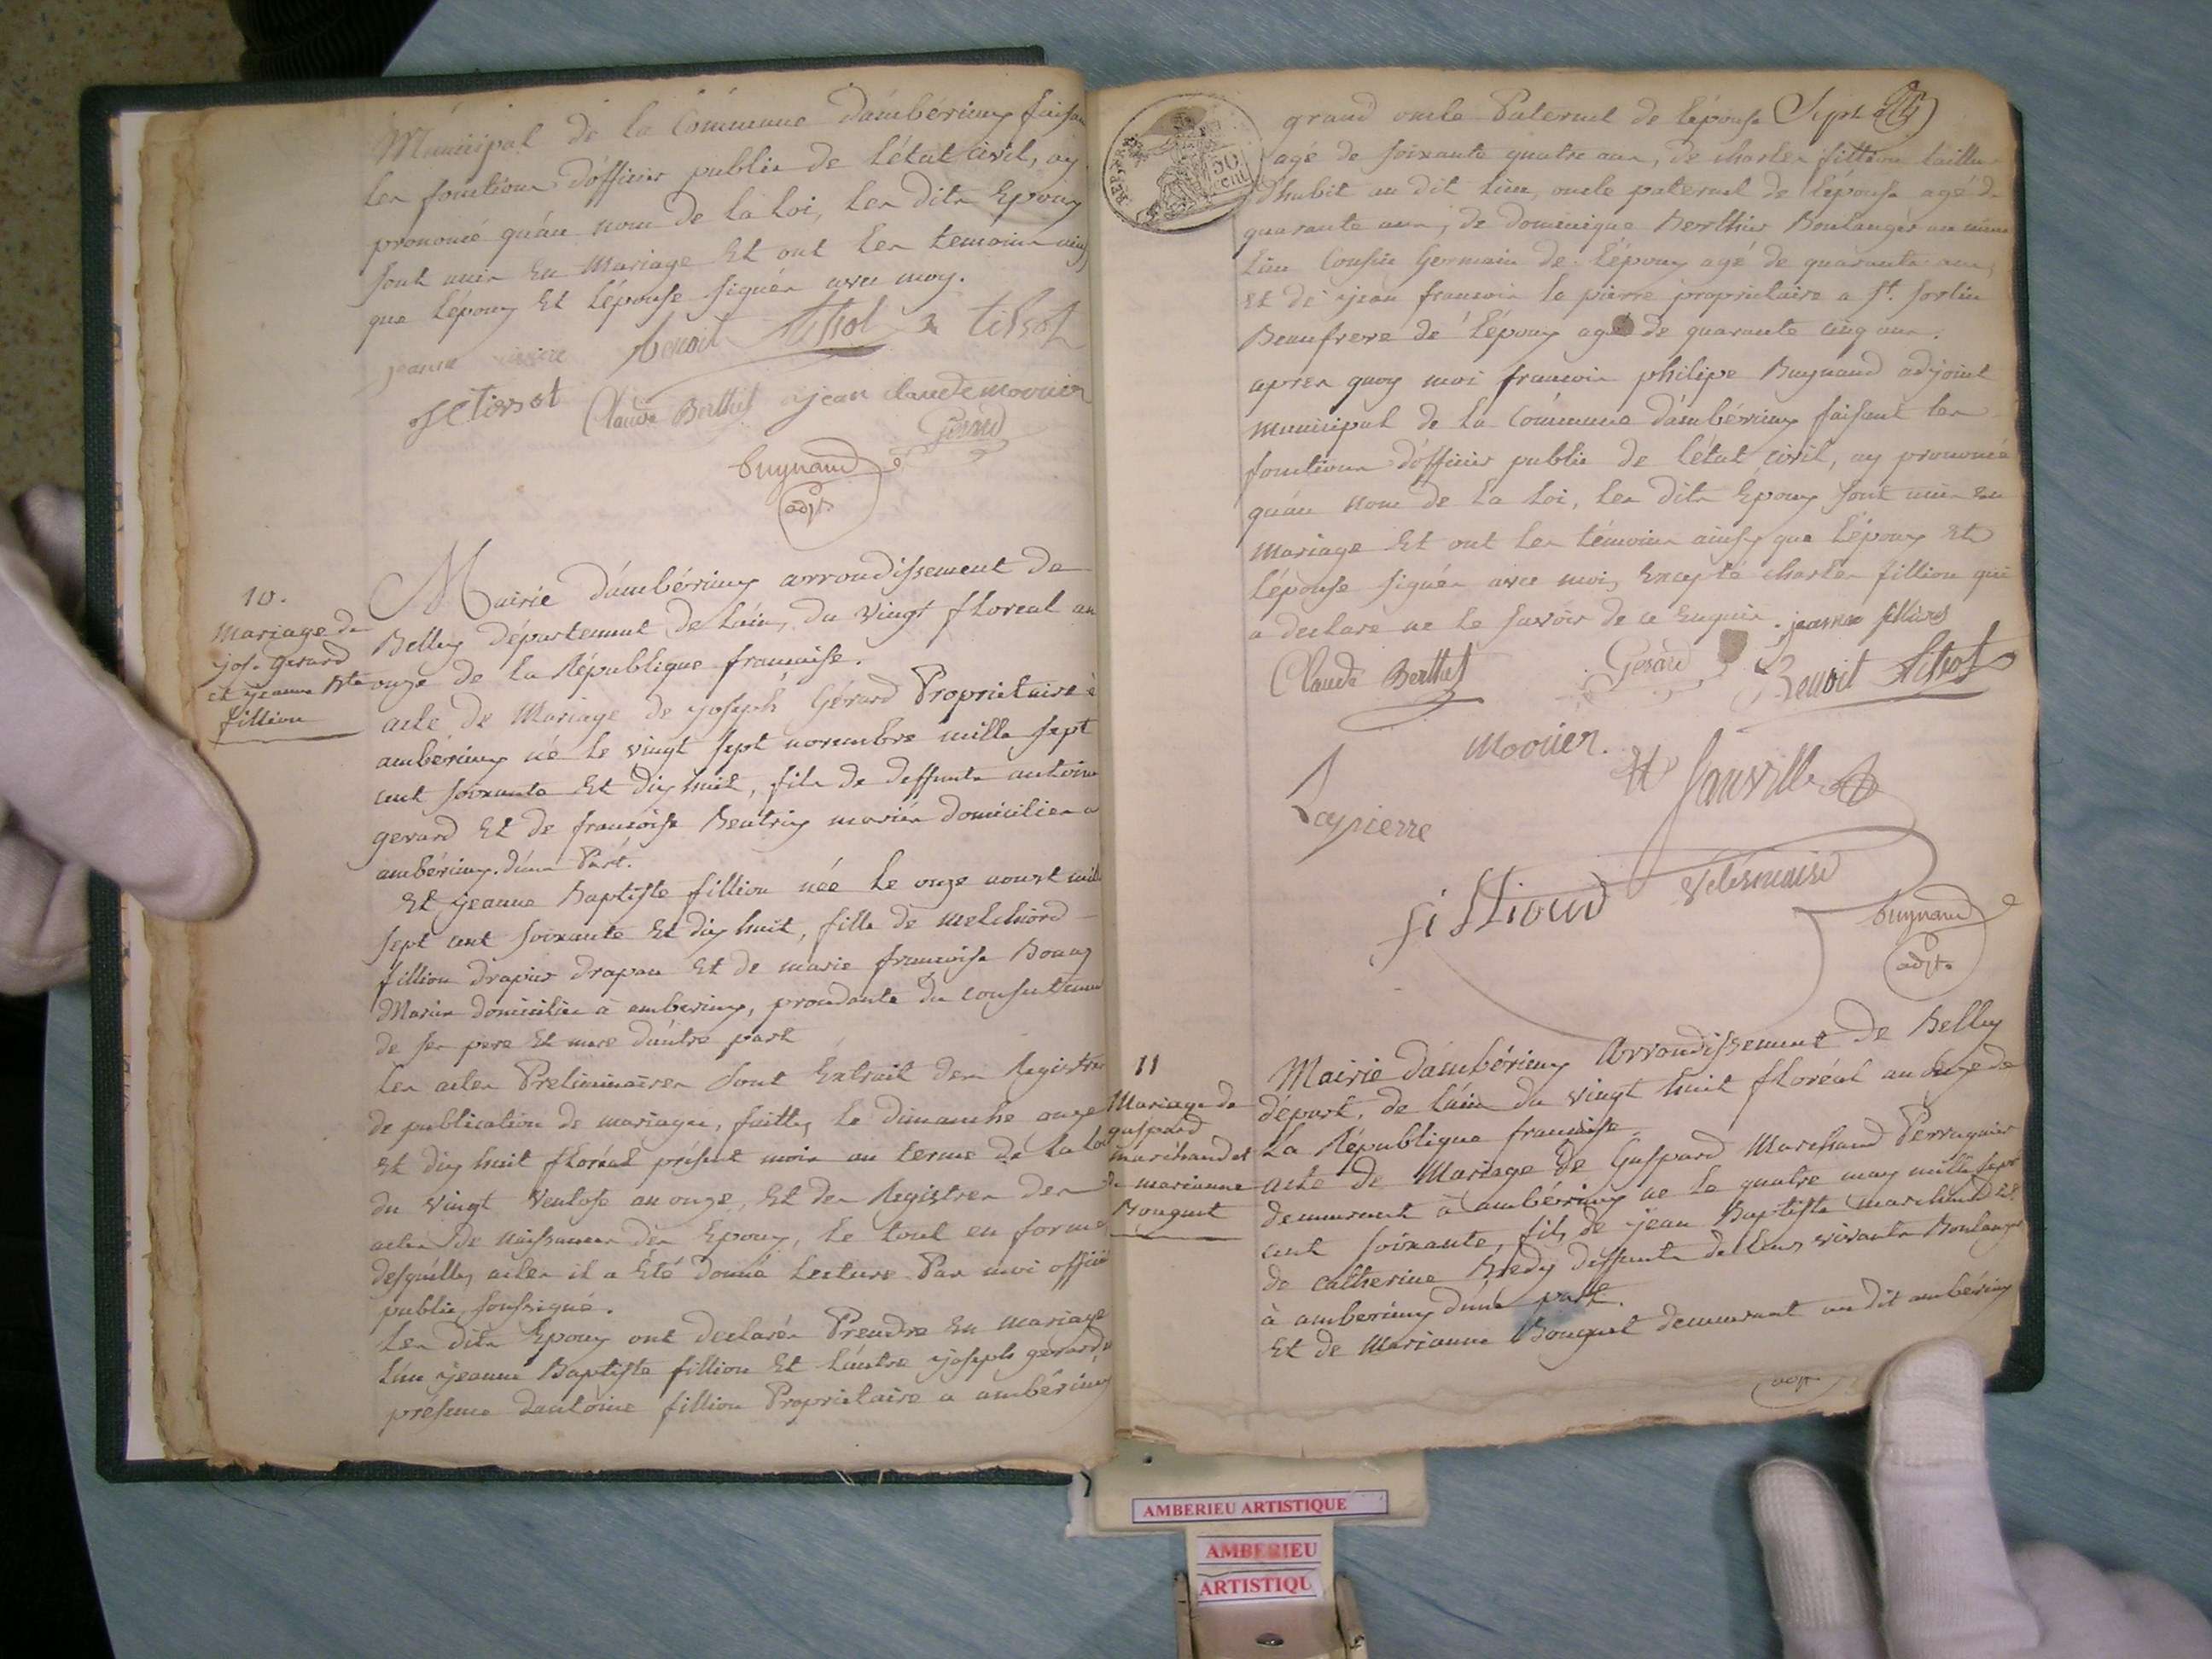 Municipal de la Commune d'ambérieux faisan
les fonctions d'officier public de l'état civil, ay
prononcé qu'au nom de la Loi, les dits Epoux
sont unis En Mariage Et ont les temoins ainsy
que l'époux Et l'épouse signés avec moy.
jeanne benoit tissot tissot
tissot Claude Berthet jean claude moovier
Gérard
buynand
adjt
10.
Mariage de
jos. gerard
et jeanne Bte
fillion
Mairie d'ambérieux arrondissement de
Belley département de l'ain, du vingt floreal an
onze de la République francaise.
acte de Mariage de joseph Gérard Propriétaire à
ambérieux né le vingt sept novembre mille sept
cent soixante Et dix huit, fils de deffunts antoine
gerard Et de francoise Beutrix mariés domiciliés a
ambérieux. d'une Part.
Et jeanne Baptiste fillion née le onze aoust mil
sept cent soixante Et dix huit, fille de melchiord
fillion drapier drapau Et de marie francoise Bouay
Mariés domiciliés à amberieux, procédante du consentement
de ses pere Et mere d'autre part
Les actes Preliminaires sont Extrait des Registres
de publication de mariages, faittes le dimanche onze
Et dix huit floréal présent mois au terme de la loi
du vingt ventose an onze, Et des Registres des
actes de Naissances des Epoux, le tout en forme
desquelles actes il a été donné lecture Par moi officié
public soussigné.
Les dits Epoux ont declarés Prendre En mariage
l'un jeanne Baptiste fillion Et l'autre joseph gerard, en
presence dantoine fillion Propriétaire a ambérieux
REP. FRA.
50
cent
grand oncle Paternel de l'épouse Sept
agé de soixante quatre ans, de charles fillion tailleur
d'habit au dit lieu, oncle paternel de l'épouse agé de
quarante ans, de dominique Berthier Boulanger au même
Lieu Cousin Germain de l'époux agé de quarante ans
Et de jean francois la pierre propriétaire a St. sorlin
Beaufrere de l'époux agé de quarante cinq ans.
apres quoy moi francois philipe Buynand adjoint
municipal de la Commune d'ambérieux faisant les
fonctions d'officier public de l'état civil, ay prononcé
qu'au nom de la Loi, les dits Epoux sont unis En
Mariage Et ont les témoins ainsy que l'époux Et
l'épouse signés avec moi, Excepté charles fillion qui
a declaré ne le savoir de ce Enquis. jeanne fillion
Claude Berthet Gerard Benoit tissot
moovier.
Lapierre
fillioud
buynand
adjt.
11
Mariage de
gaspard
marchand et
de marianne
Bouquet
Mairie d'ambérieux Arrondissement de Belley
départ. de l'ain du vingt huit floréal an onze de
La République francaise.
acte de Mariage de Gaspard Marchand Perruquier
demeurant à ambérieux né le quatre may mille sept
cent soixante, fils de jean Baptiste marchand Et
de catherine Bredy deffunts de leurs vivants Boulangers
à amberieux d'une part.
Et de Marianne Bouquet demeurant au dit ambérieux
adjt
AMBERIEU ARTISTIQUE
AMBERIEU
ARTISTIQU